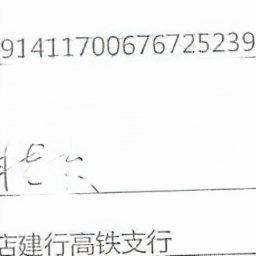 91411700676725239
店建行高铁支行